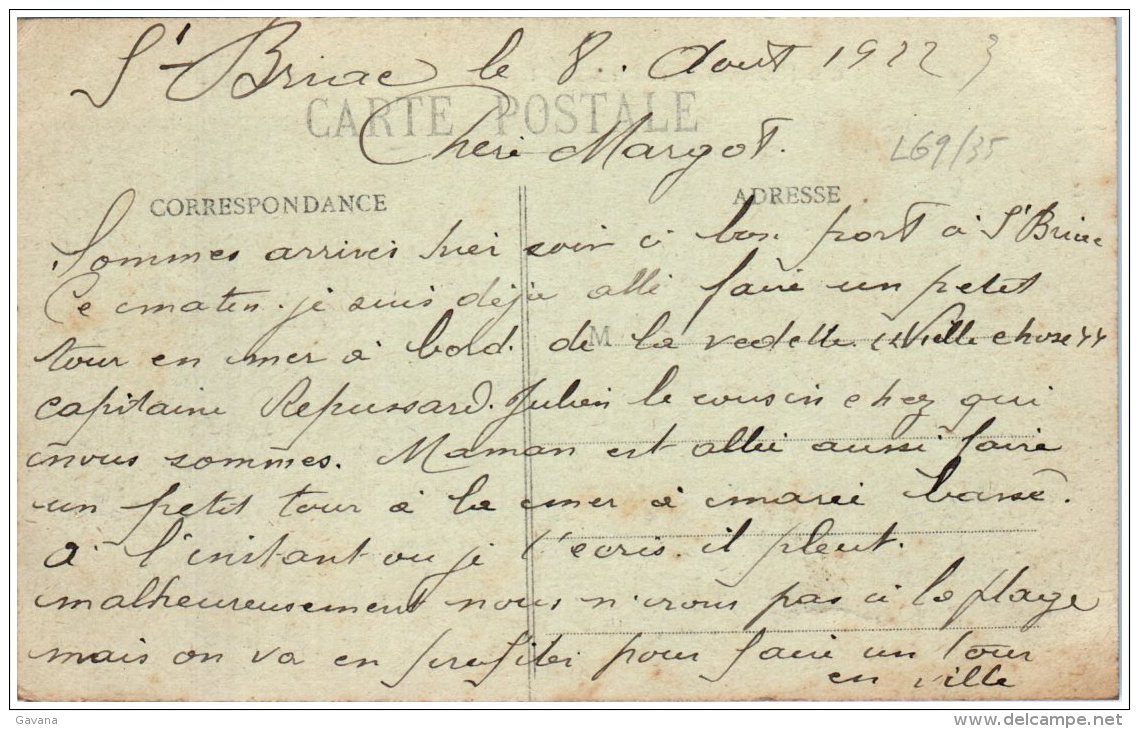 St Briac le 8. Aout 1922
CARTE POSTALE
Cheri Margot.
L69/35
CORRESPONDANCE
ADRESSE
Sommes arrivés hier soir à bon port à St Briac
Ce matin. je suis déjà allé faire un petit
M
tour en mer à bord. de la vedette "Vieille chose"
capitaine Repussard. Julien le cousin chez qui
nous sommes. Maman est allée aussi faire
un petit tour à la mer à marée basse.
A l'instant ou je t'ecris. il pleut.
malheureusement nous n'irons pas à la plage
mais on va en profiter pour faire un tour
en ville
Gavana
delcampe.net